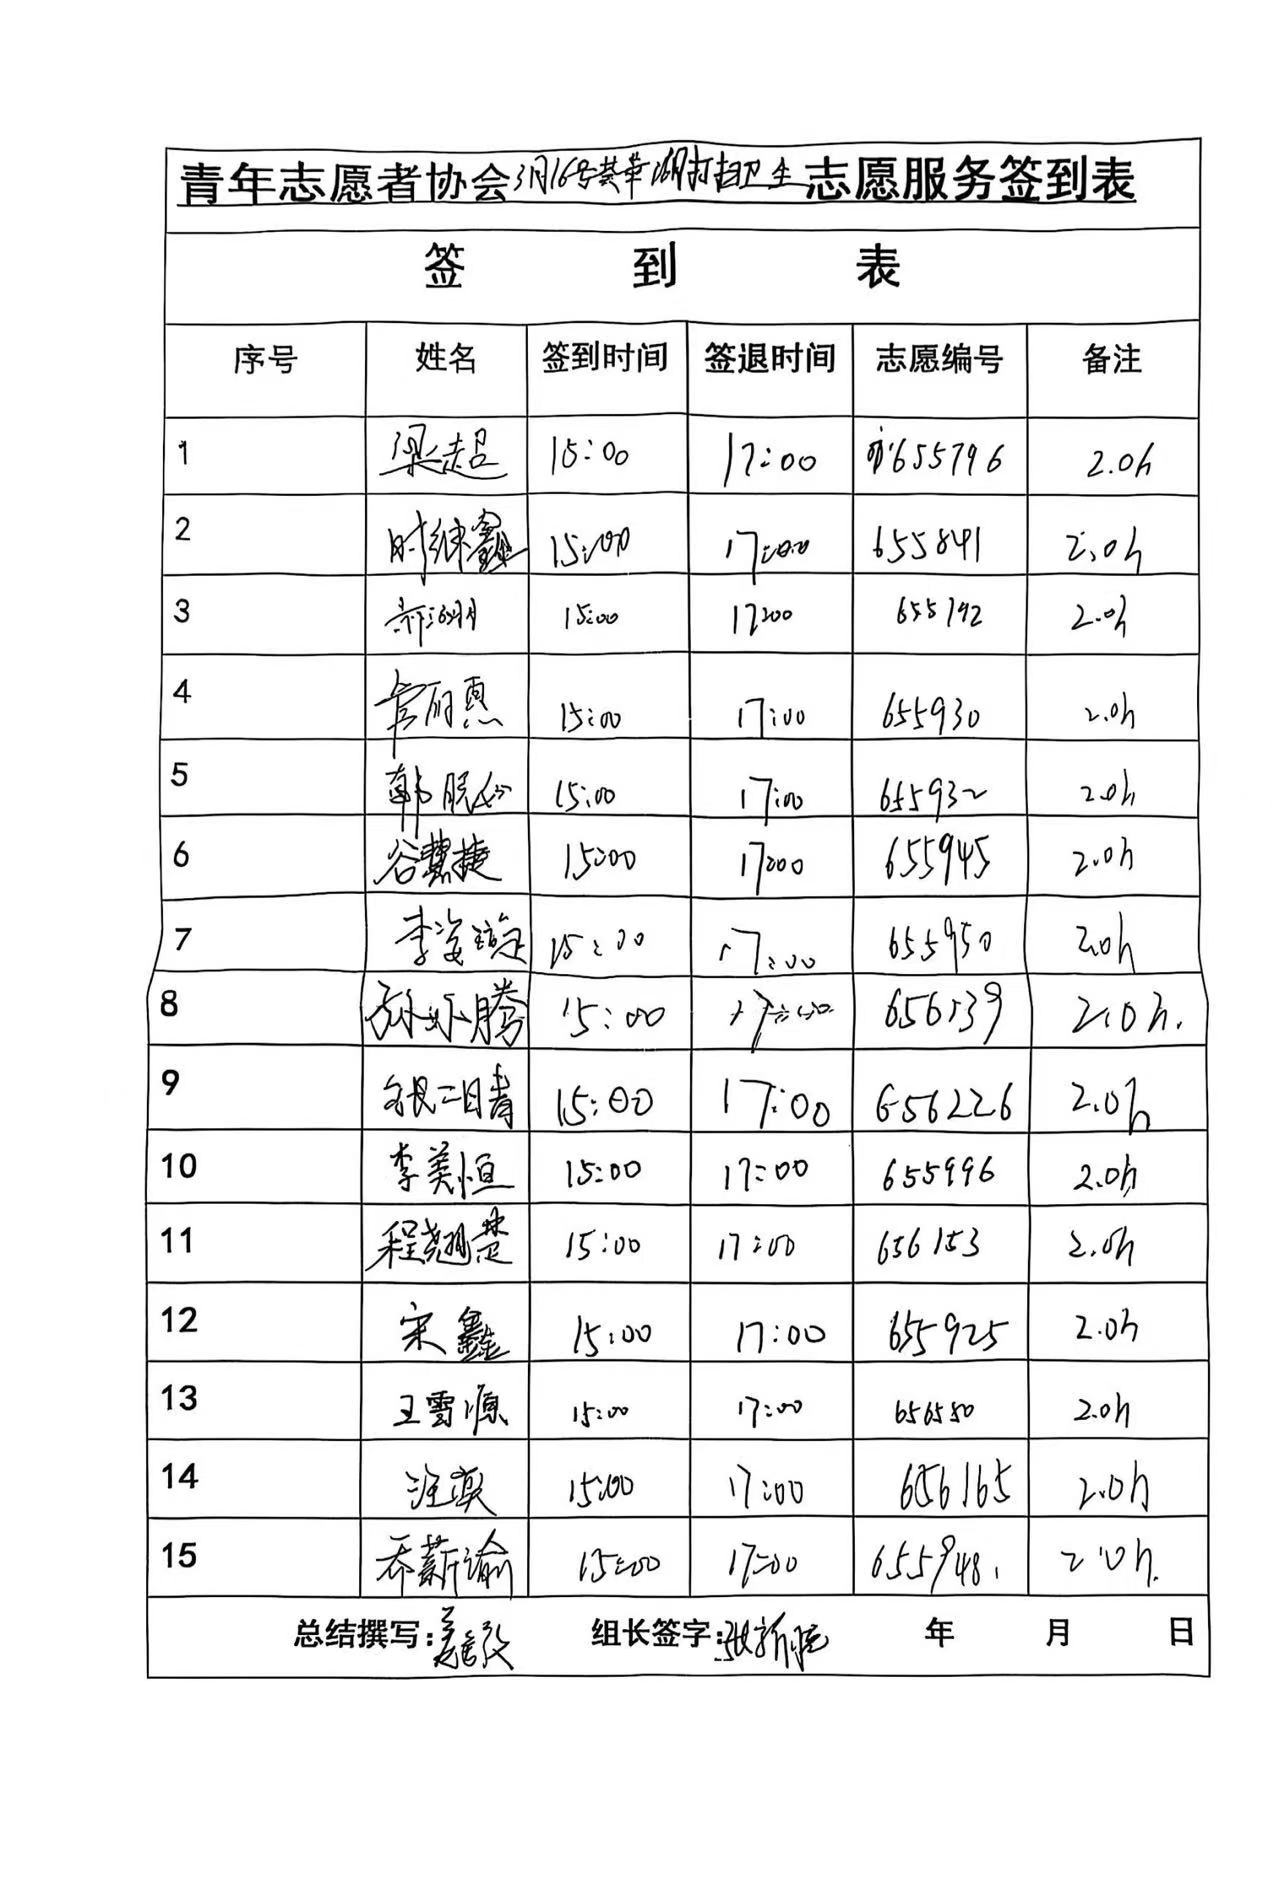 青年志愿者协会3月16号英华湖打扫卫生志愿服务签到表
签 到 表
序号 姓名 签到时间 签退时间 志愿编号 备注
1 梁超 15:00 17:00 655796 2.0h
2 时继鑫 15:00 17:00 655841 2.0h
3 15:00 17:00 655792 2.0h
4 15:00 17:00 655930 2.0h
5 韩 15:00 17:00 655932 2.0h
6 谷慧捷 15:00 17:00 655945 2.0h
7 李姿璇 15:00 17:00 655950 2.0h
8 15:00 17:00 656139 2.0h.
9 15:00 17:00 656226 2.0h
10 李美恒 15:00 17:00 655996 2.0h
11 程翘楚 15:00 17:00 656153 2.0h
12 宋鑫 15:00 17:00 655925 2.0h
13 王雪源 15:00 17:00 656550 2.0h
14 15:00 17:00 656165 2.0h
15 乔薪谕 15:00 17:00 655948. 2.0h.
总结撰写: 组长签字:张新 年 月 日